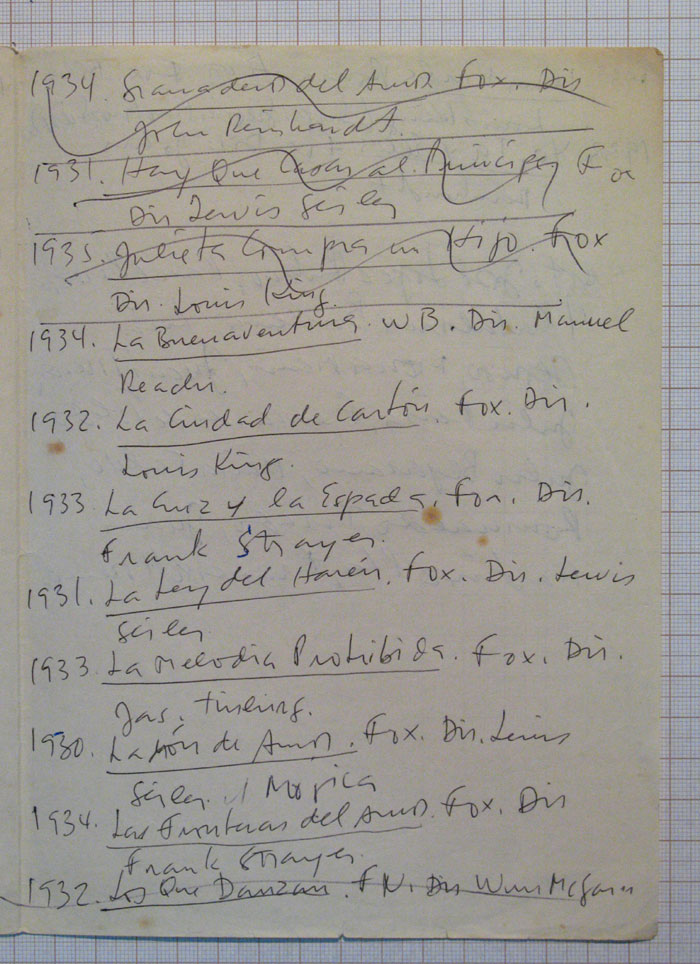 1934. Granaderos del Amor. Fox. Dir
John Reinhardt.
1931. Hay Que Casar al Principe Fox
Dir Lewis Seiler
1935. Julieta Compra un Hijo. Fox
Dir. Louis King.
1934. La Buenaventura. WB. Dir. Manuel
Reachi.
1932. La Ciudad de Cartón Fox. Dir.
Louis King.
1933 La Cruz y la Espada. Fox. Dir.
Frank Strayer.
1931. La Ley del Harén. Fox. Dir. Lewis
Seiler
1933 La Melodia Prohibida. Fox. Dir.
Jas.
1930. Ladrón de Amor. Fox. Dir. Lewis
Seiler. Mojica
1934. Las Fronteras del Amor. Fox. Dir
Frank Strayer.
1932. Los Que Danzan. FN. Dir Wm McGann